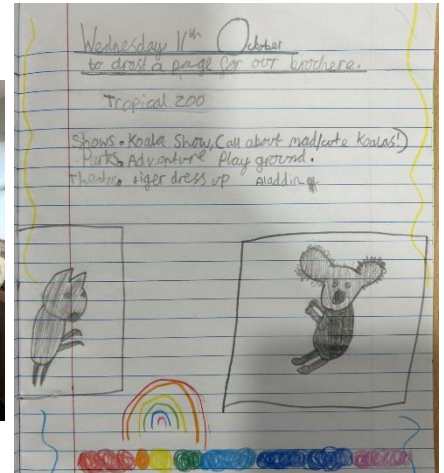 Wednesday 11th October
to draft a page for our brochere.
Tropical zoo
Shows. Koala Show, (all about mad/cute Koalas!)
Parks. Adventure Play ground.
Theatre. tiger dress up Aladdin